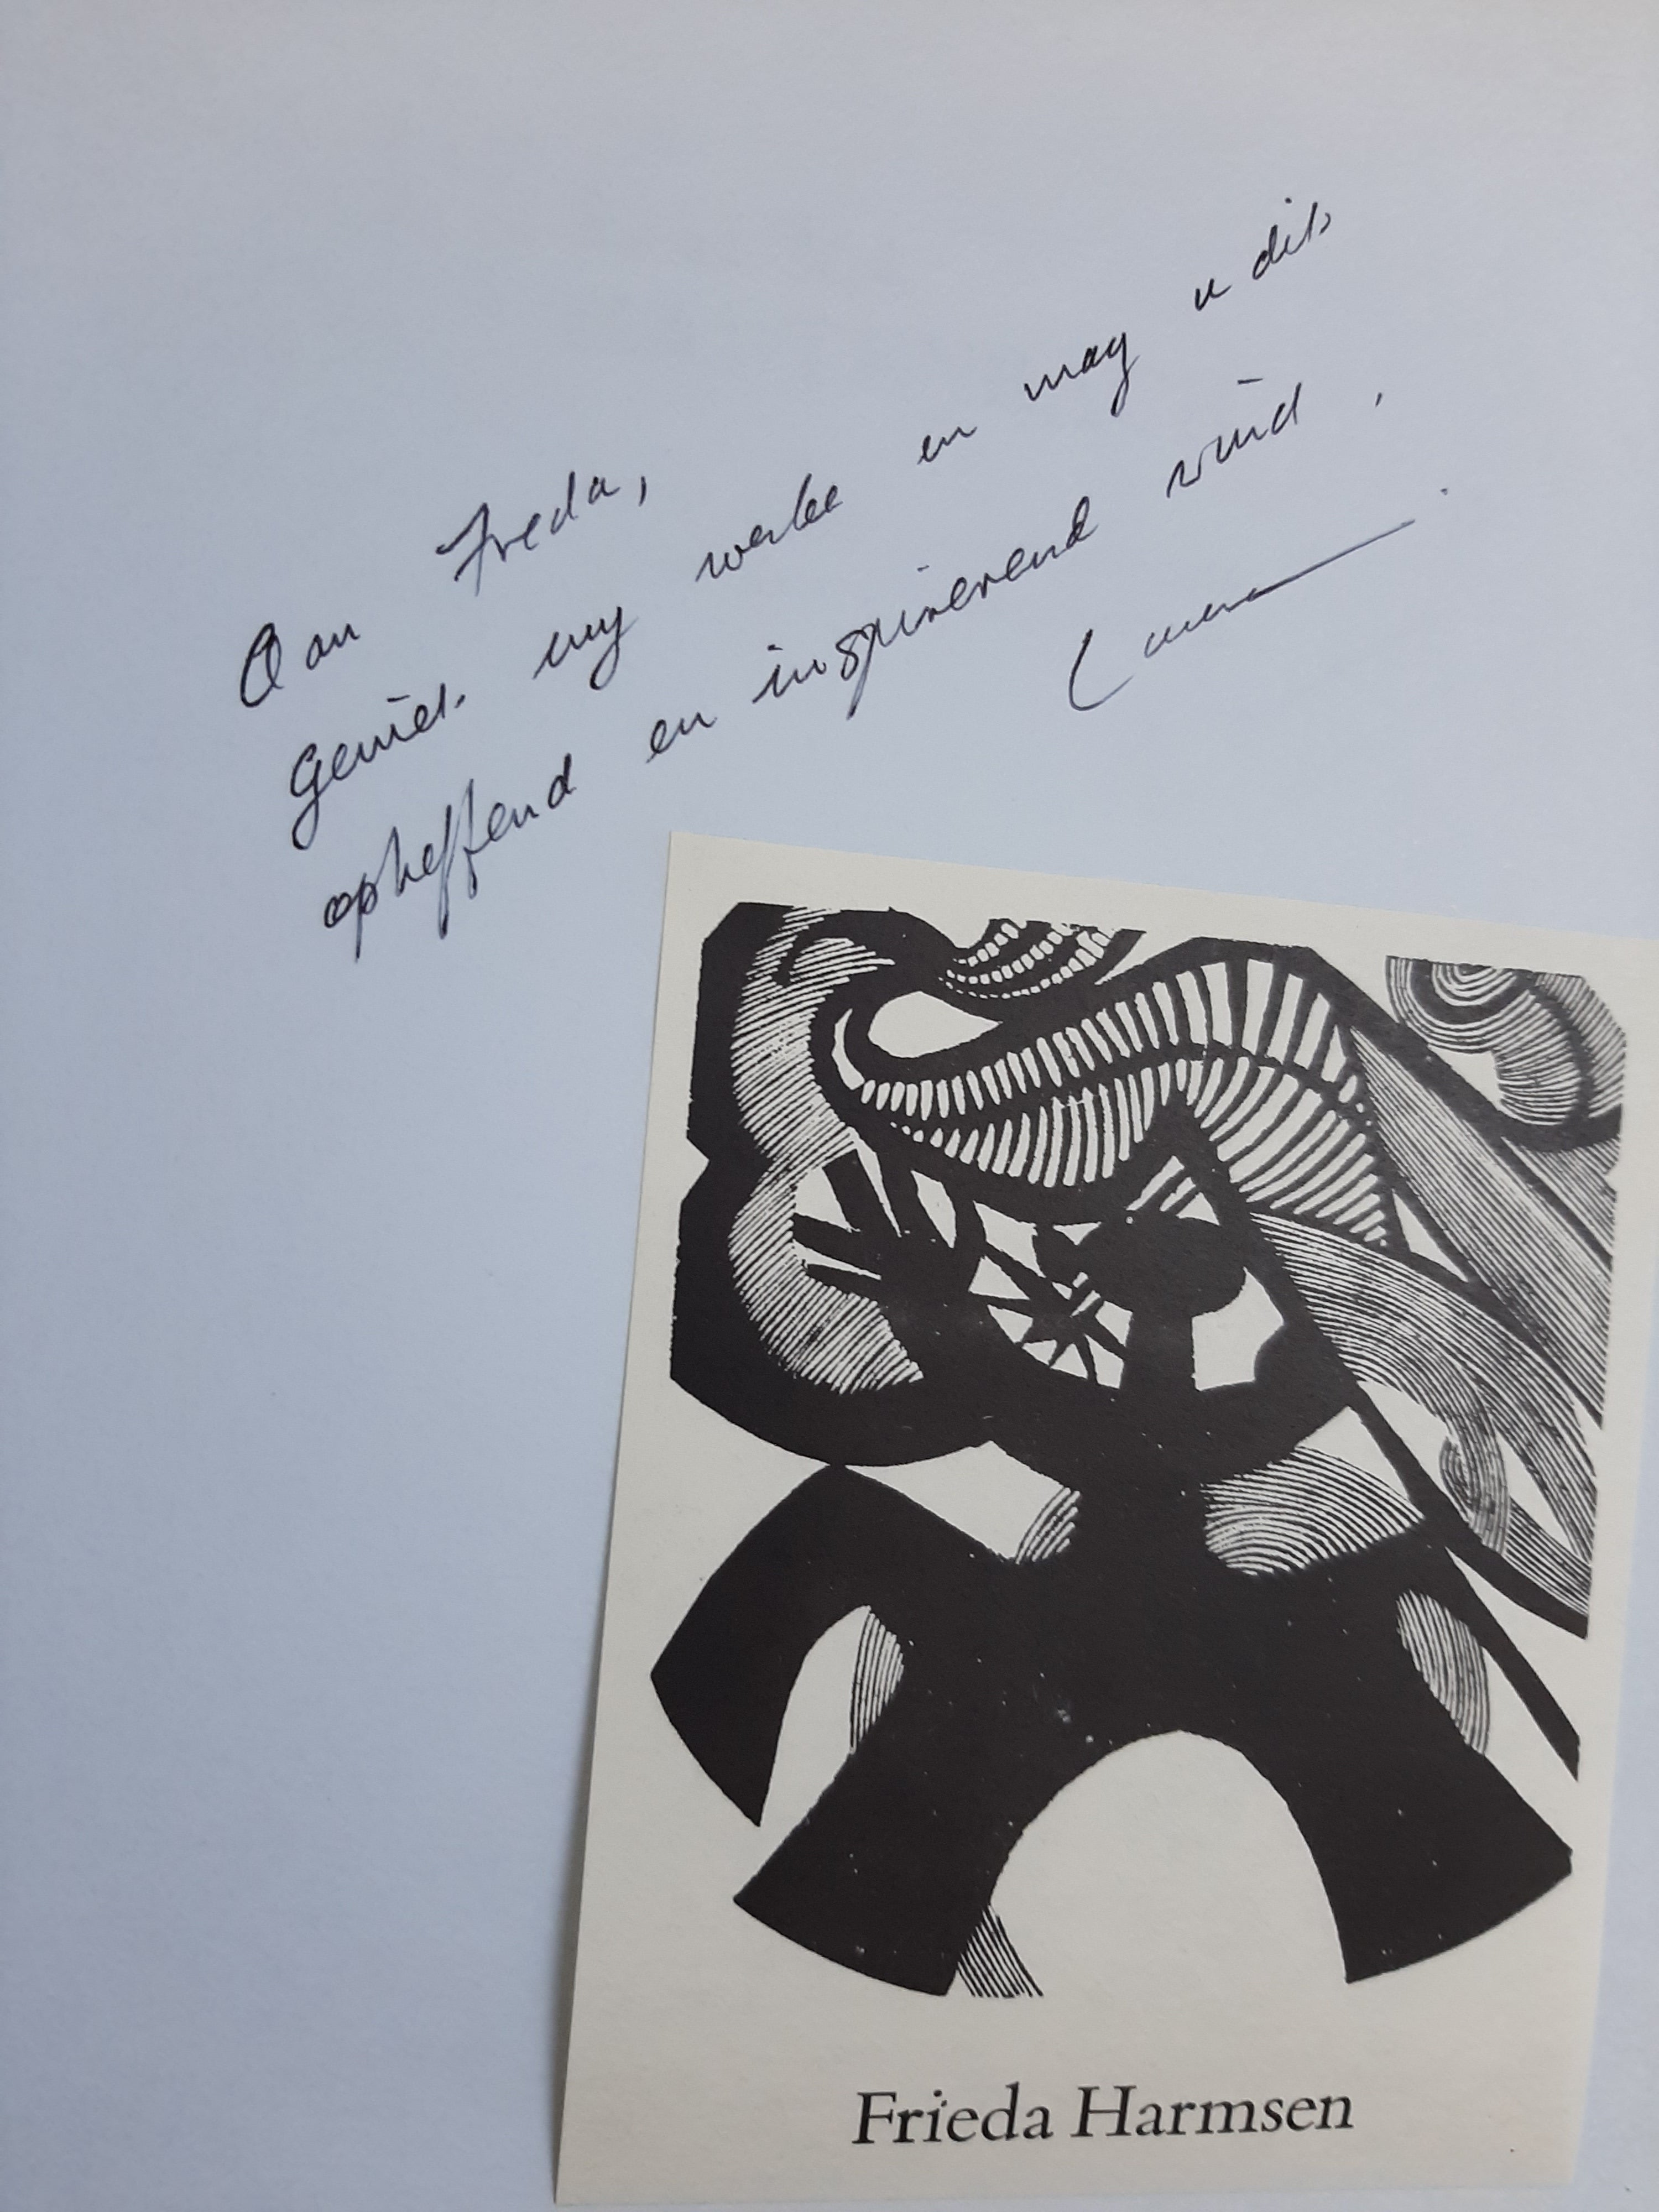 Aan Freda,
Geniet my werke en mag u dit
opheffend en inspirerend vind.
Frieda Harmsen